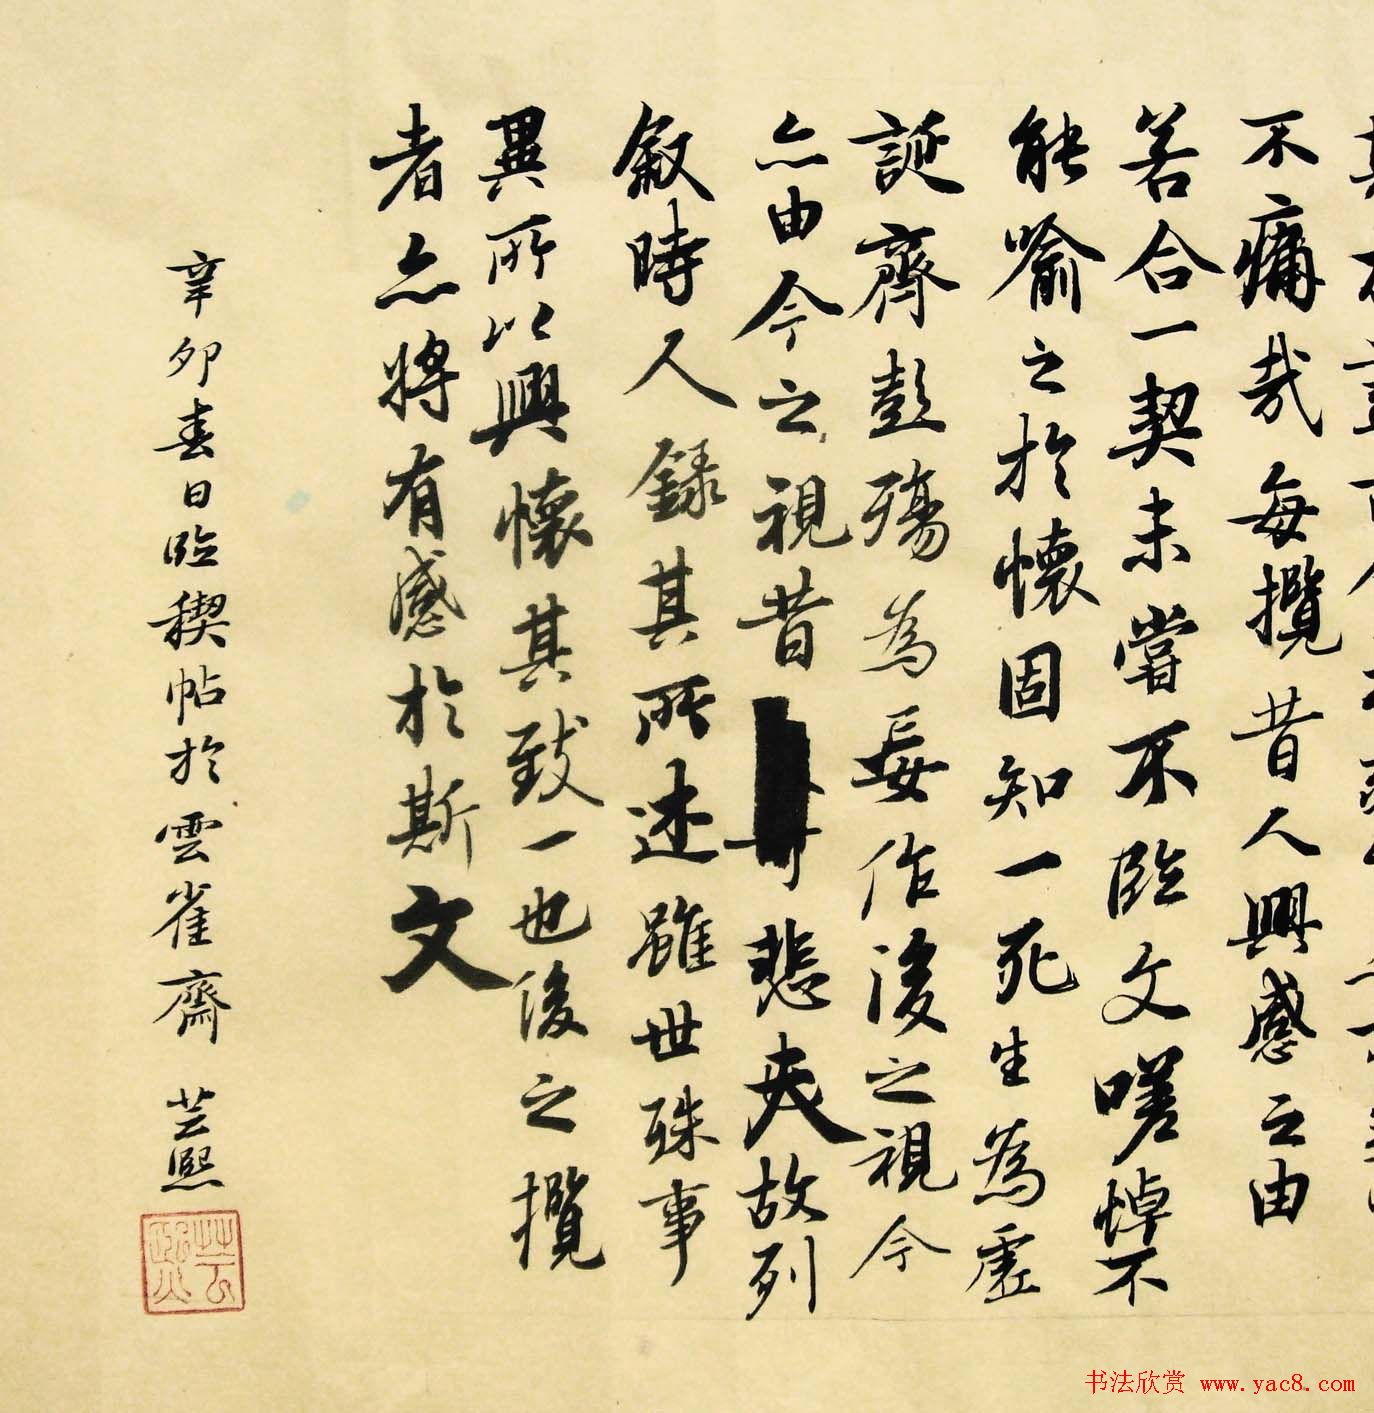 不痛哉每攬昔人興感之由
若合一契未嘗不臨文嗟悼不
能喻之於懷固知一死生為虛
誕齊彭殤為妄作後之視今
亦由今之視昔悲夫故列
叙時人錄其所述雖世殊事
異所以興懷其致一也後之攬
者亦將有感於斯文
辛卯春日臨稧帖於雲雀齋 芸熙
芸熙
书法欣赏 www.yac8.com